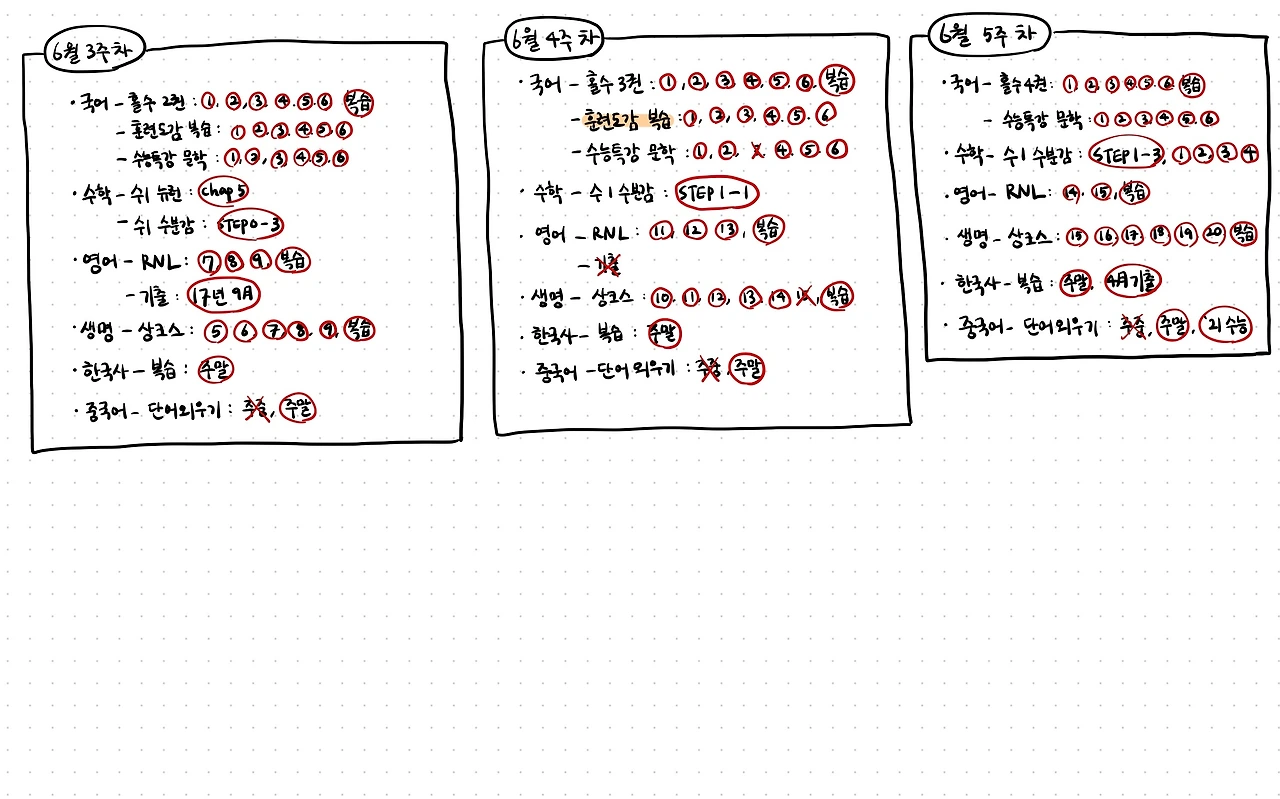 6월 3주차
· 국어 - 홀수 2권 : ①, ②, ③. ④. ⑤. ⑥ 복습
- 훈련도감 복습 : ① ②. ③. ④. ⑤. ⑥
- 수능특강 문학 : ①, ②, ③ ④. ⑤. ⑥
· 수학 - 수1 뉴런 : chap 5
- 수1 수분감 : STEP 0-3
· 영어 - RNL : 7, 8, 9, 복습
- 기출 : 17년 9月
· 생명 - 상코스 : ⑤ ⑥ ⑦ ⑧. ⑨. 복습
· 한국사 - 복습 : 주말
· 중국어 - 단어외우기 : 주중, 주말
6월 4주차
· 국어 - 홀수 3권 : ①, ②, ③ ④, ⑤. ⑥. 복습
- 훈련도감 복습 : ①, ②, ③, ④. ⑤. ⑥
- 수능특강 문학 : ①, ②. 3 ④. ⑤. ⑥
· 수학 - 수1 수분감 : STEP 1-1
· 영어 - RNL : ⑪. ⑫ ⑬, 복습
- 기출
· 생명 - 상코스 : ⑩. ⑪. ⑫, ⑬. ⑭ 15, 복습
· 한국사 - 복습 : 주말
· 중국어 - 단어외우기 : 주중, 주말
6월 5주차
· 국어 - 홀수 4권 : ① ② ③ ④ ⑤ ⑥ 복습
- 수능특강 문학 : ① ② ③ ④. ⑤. ⑥
· 수학 - 수1 수분감 : STEP 1-3, ① ②, ③ ④
· 영어 - RNL : ⑭. ⑮, 복습
· 생명 - 상코스 : ⑮ ⑯. ⑰. ⑱ ⑲ ⑳ 복습
· 한국사 - 복습 : 주말, 4月 기출
· 중국어 - 단어외우기 : 주중, 주말, '21 수능